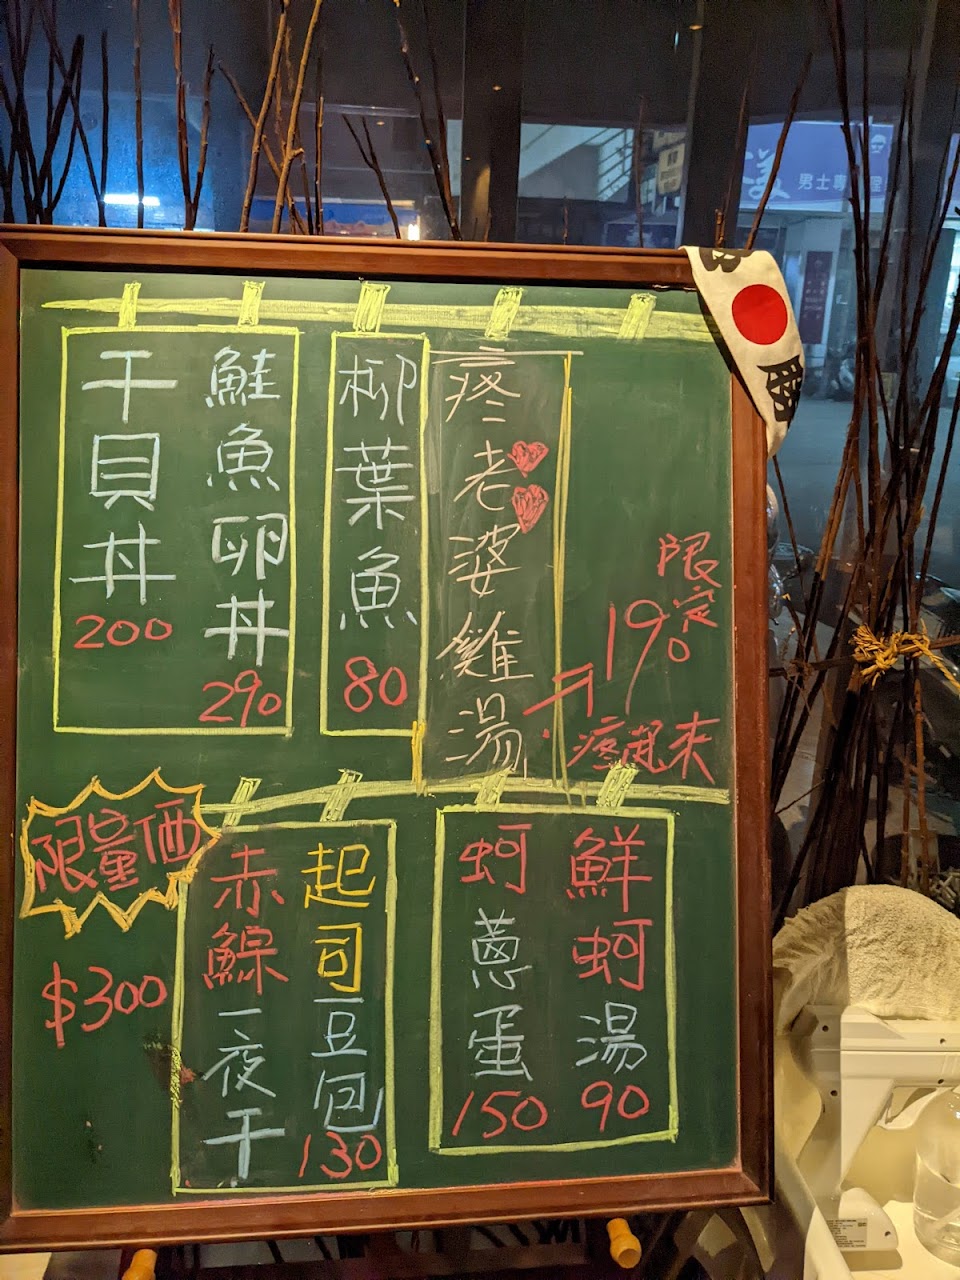 疼老婆雞湯
限定
190
疼起來
柳葉魚
80
鮭魚卵丼
290
干貝丼
200
鮮蚵湯
90
蚵蔥蛋
150
起司豆包
130
赤鯮一夜干
限量価
$300
勝
男士專